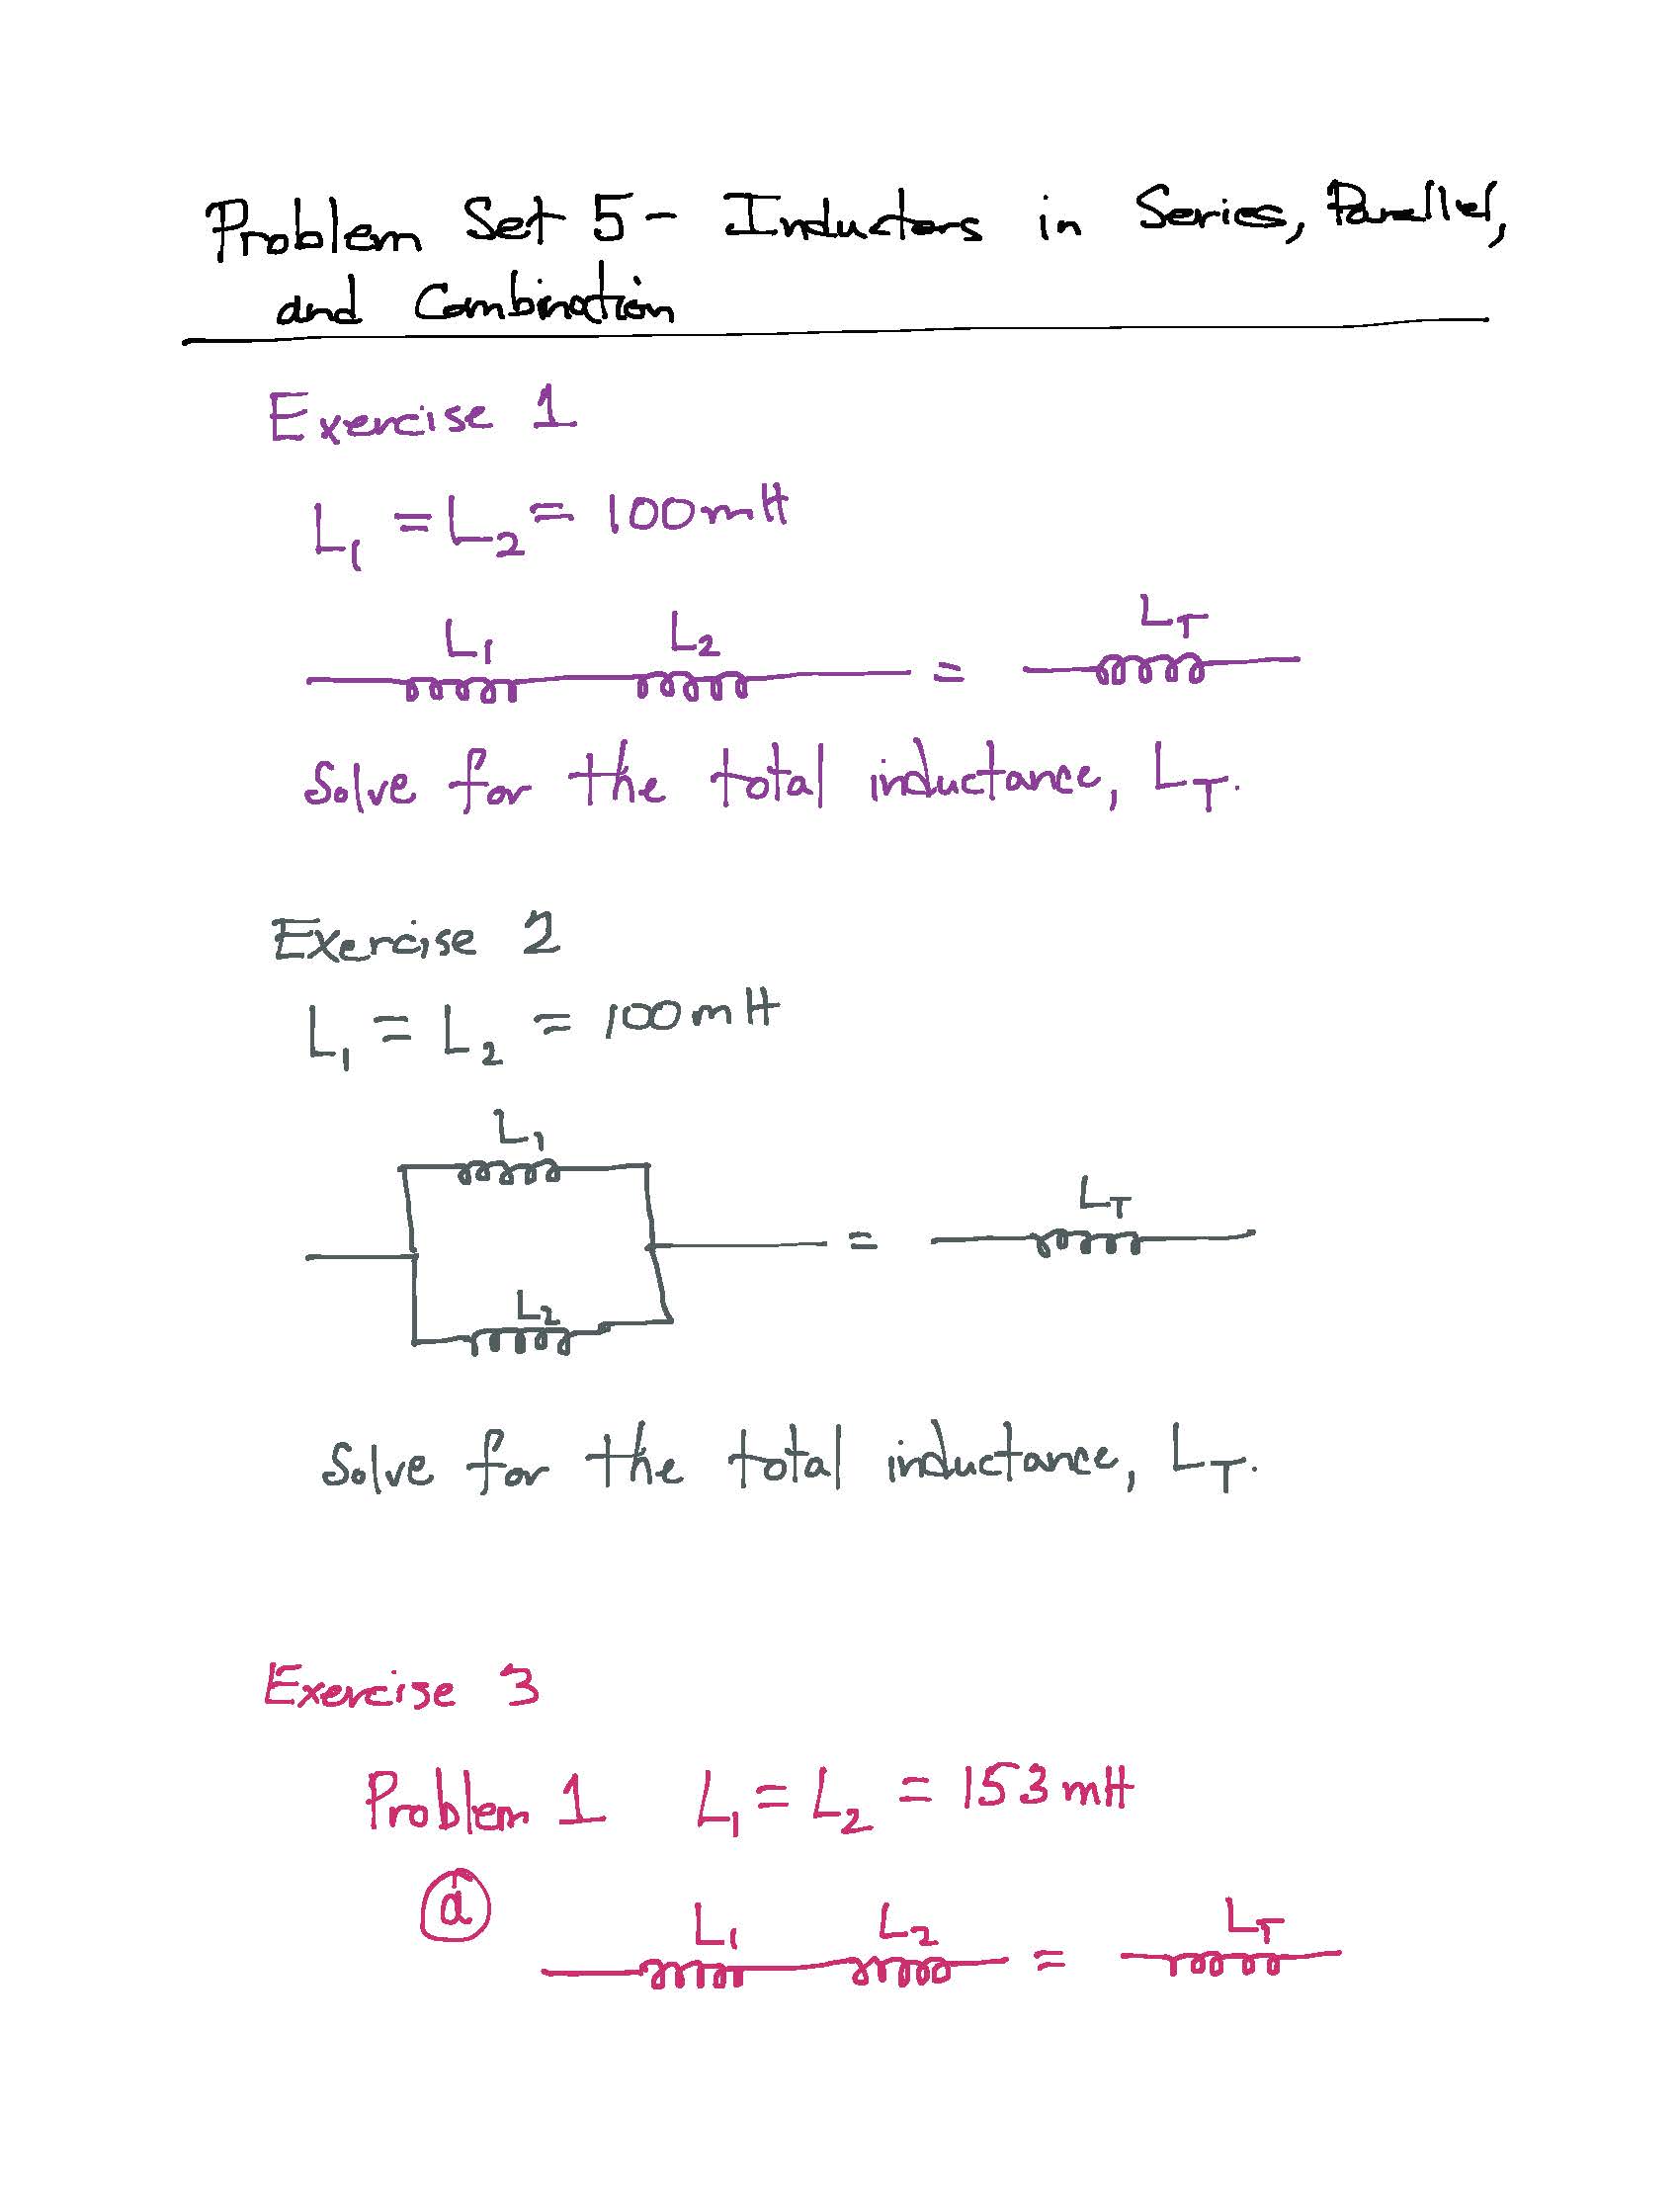 Problem Set 5 - Inductors in Series, Parallel,
and Combination
Exercise 1
L₁ = L₂ = 100mH
L₁ L₂ = L_T
Solve for the total inductance, L_T.
Exercise 2
L₁ = L₂ = 100mH
L₁
= L_T
L₂
Solve for the total inductance, L_T.
Exercise 3
Problem 1 L₁ = L₂ = 153mH
ⓐ L₁ L₂ = L_T